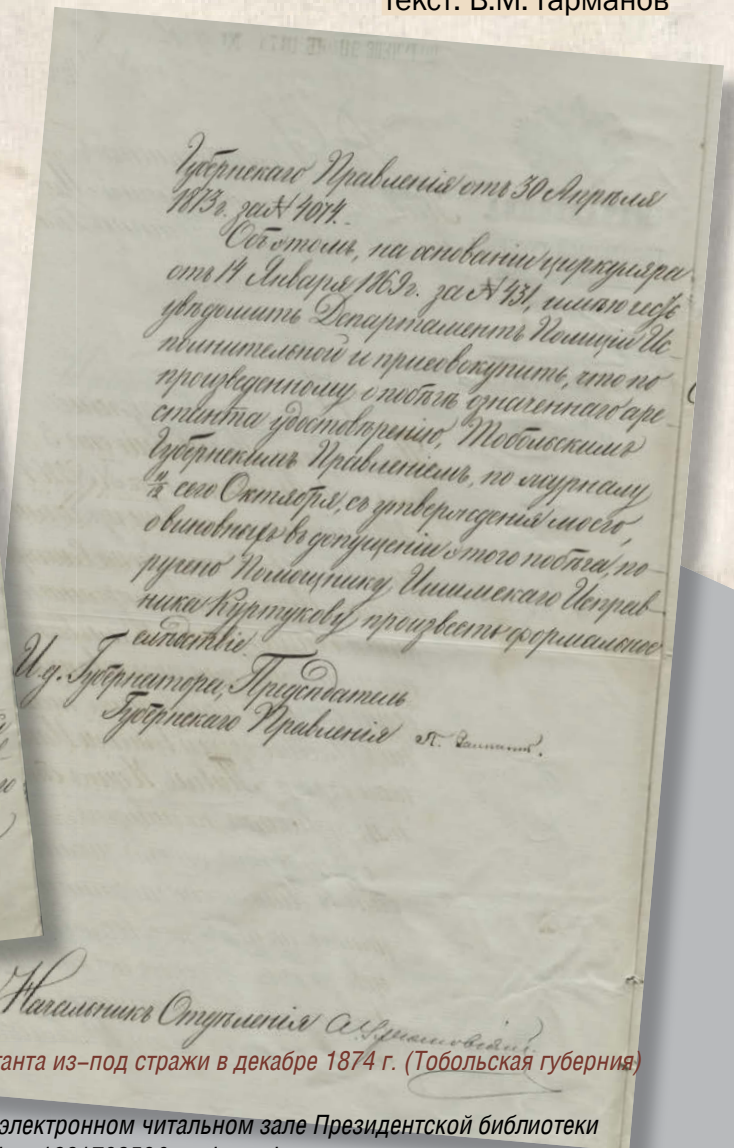 Текст: В.М. Гарманов
Губернскаго Правленія отъ 30 Апрѣля
1873 г. за № 4074.
Объ этомъ, на основаніи циркуляра
отъ 14 Января 1869 г. за № 431, имѣю честь
увѣдомить Департаментъ Полиціи Ис-
полнительной и присовокупить, что по
произведенному о побѣгѣ означеннаго аре-
станта удостовѣренію, Тобольскимъ
Губернскимъ Правленіемъ, по журналу
сего Октября, съ утвержденія моего,
о виновныхъ въ допущеніи этого побѣга, по-
ручено Помощнику Ишимскаго Исправ-
ника Куртукову произвесть формальное
слѣдствіе.
И.д. Губернатора, Предсѣдатель
Губернскаго Правленія
Начальникъ Отдѣленія
танта из-под стражи в декабре 1874 г. (Тобольская губерния)
электронном читальном зале Президентской библиотеки